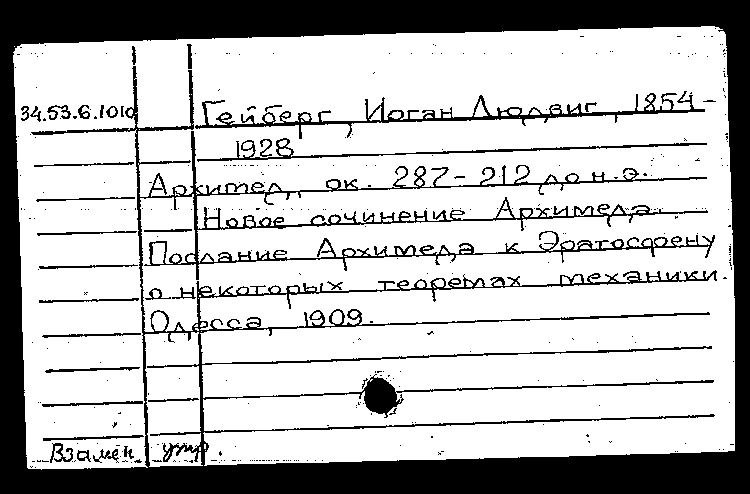 34.53.6.1010 Гейберг, Иоган Людвиг, 1854-
1928
Архимед, ок. 287-212 до н.э.
Новое сочинение Архимеда.
Послание Архимеда к Эратосфену
о некоторых теоремах механики.
Одесса, 1909.
Взамен утр.